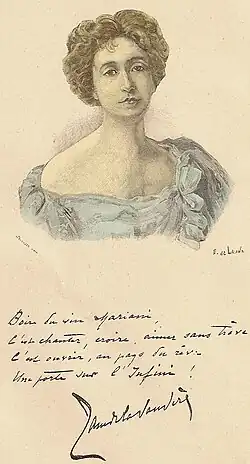 Boire du vin Mariani,
C'est chanter, croire, aimer sans trève
C'est ouvrir, au pays du rêve
Une porte sur l'Infini !
Jane de la Vaudère